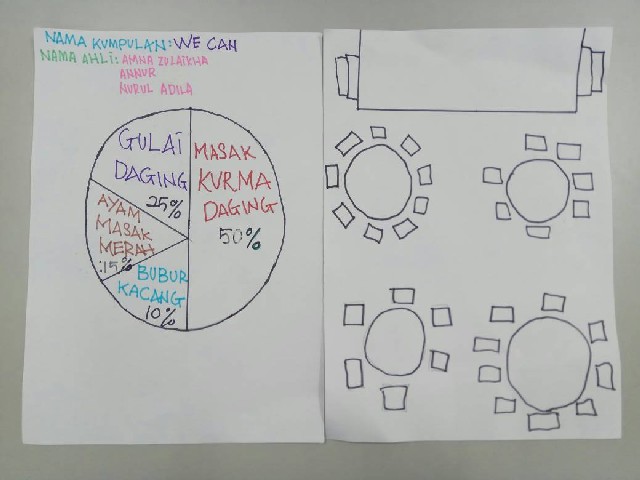 NAMA KUMPULAN: WE CAN
NAMA AHLI: AMNA ZULAIKHA
ANNUR
NURUL ADILA
GULAI
DAGING
25%
MASAK
KURMA
DAGING
50%
AYAM
MASAK
MERAH
:15%
BUBUR
KACANG
10%